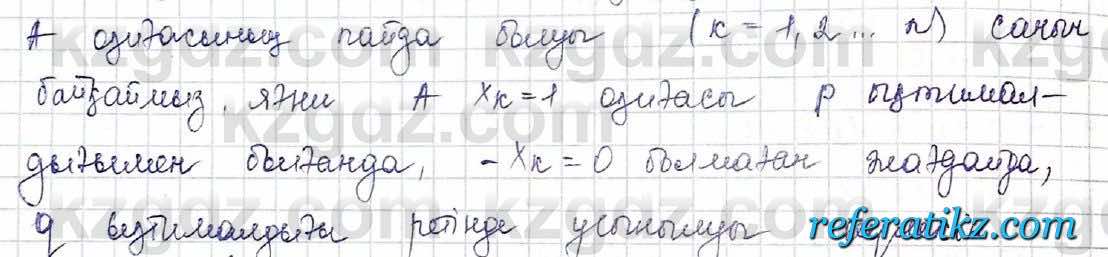 А оқиғасының пайда болуы (к = 1, 2 ... n) санын
байқаймыз, яғни А xк = 1 оқиғасы р ықтимал-
дығымен болғанда, - xк = 0 болмаған жағдайда,
q ықтималдығы ретінде ұсынылуы
referatikz.com
kzgdz.com